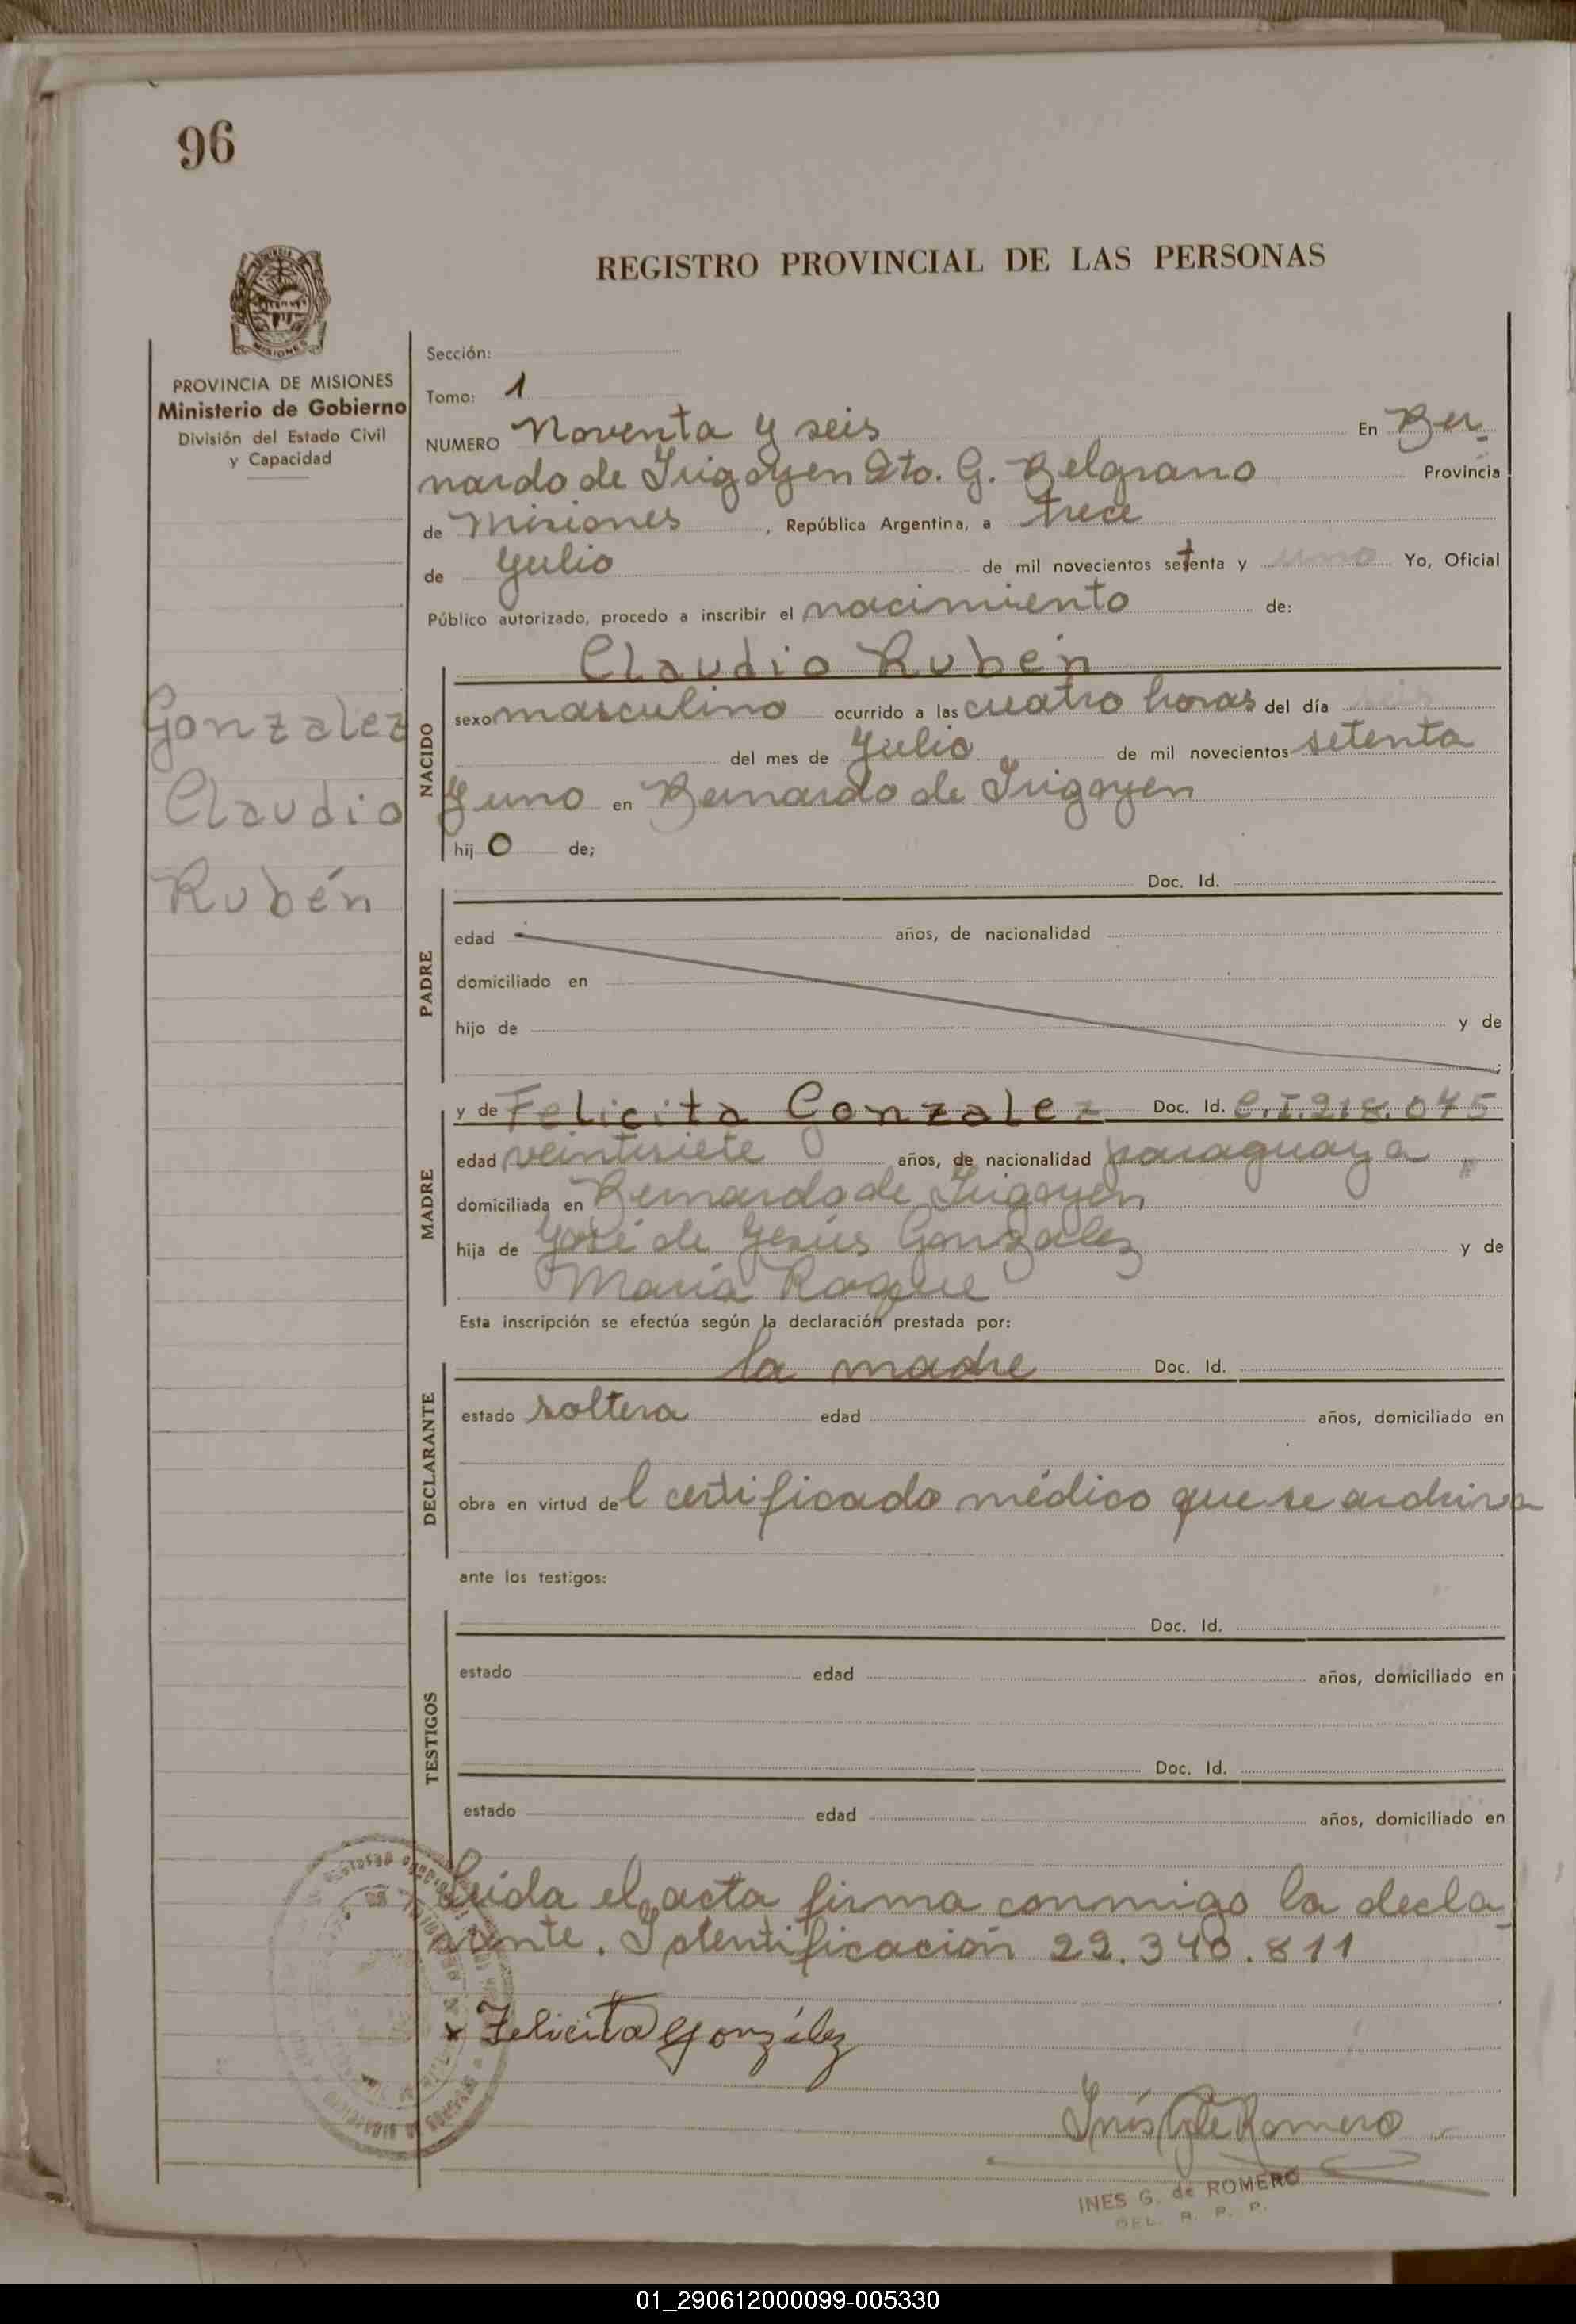 96
REGISTRO PROVINCIAL DE LAS PERSONAS
MISIONES
PROVINCIA DE MISIONES
Ministerio de Gobierno
División del Estado Civil
y Capacidad
Gonzalez
Claudio
Rubén
Sección:
Tomo: 1
NUMERO Noventa y seis En Ber-
nardo de Irigoyen Dto. G. Belgrano Provincia
de Misiones, República Argentina, a trece
de Julio de mil novecientos setenta y uno Yo, Oficial
Público autorizado, procedo a inscribir el nacimiento de:
Claudio Rubén
NACIDO
sexo masculino ocurrido a las cuatro horas del día seis
del mes de Julio de mil novecientos setenta
y uno en Bernardo de Irigoyen
hij o de;
PADRE
Doc. Id.
edad años, de nacionalidad
domiciliado en
hijo de y de
;
MADRE
y de Felicita Gonzalez Doc. Id. C.I.218.045
edad veintisiete años, de nacionalidad paraguaya
domiciliada en Bernardo de Irigoyen
hija de José de Jesús Gonzalez y de
María Roque
Esta inscripción se efectúa según la declaración prestada por:
DECLARANTE
la madre Doc. Id.
estado soltera edad años, domiciliado en
obra en virtud del certificado médico que se archiva
ante los testigos:
TESTIGOS
Doc. Id.
estado edad años, domiciliado en
Doc. Id.
estado edad años, domiciliado en
Leída el acta firma conmigo la decla-
rante. Identificación 22.340.811
x Felicita González
Inés G de Romero
INES G. de ROMERO
DEL. R. P. P.
01_290612000099-005330